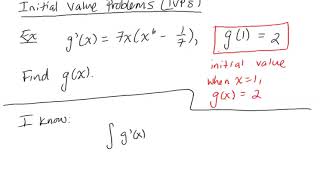 Initial Value Problems (IVPs)
Ex g'(x) = 7x(x⁶ - 1/7), g(1) = 2
Find g(x).
initial value
when x=1,
g(x) = 2
I know:
∫ g'(x)